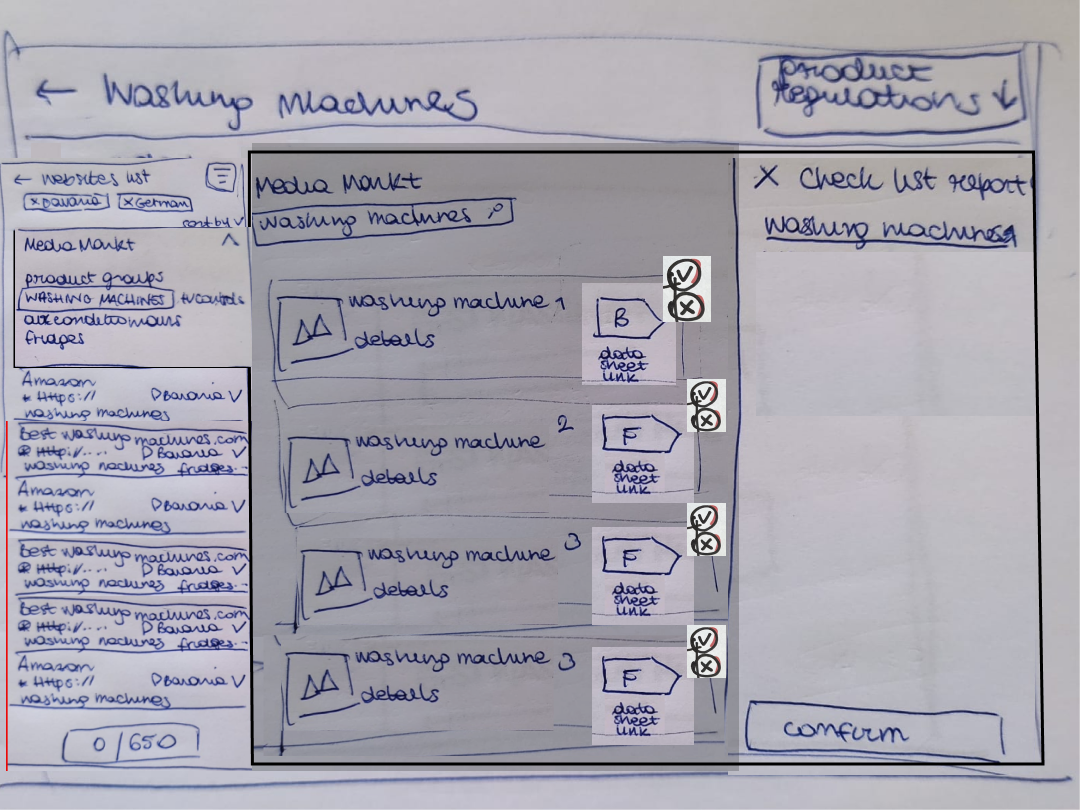 ← Washing Machines
product
regulations ↓
← websites list
x Bavaria x German
sort by v
Media Markt
product groups
WASHING MACHINES tv controls
airconditionairs
fridges
Amazon
* Http:// Bavaria v
washing machines
Best washing machines.com
Http://.... Bavaria v
washing machines fridges...
Amazon
* Http:// Bavaria v
washing machines
Best washing machines.com
Http://.... Bavaria v
washing machines fridges...
Best washing machines.com
Http://.... Bavaria v
washing machines fridges...
Amazon
* Http:// Bavaria v
washing machines
0/650
Media Markt
washing machines
washing machine 1
details
B
data
sheet
link
washing machine 2
details
F
data
sheet
link
washing machine 3
details
F
data
sheet
link
washing machine 3
details
F
data
sheet
link
X Check list report
washing machines
confirm